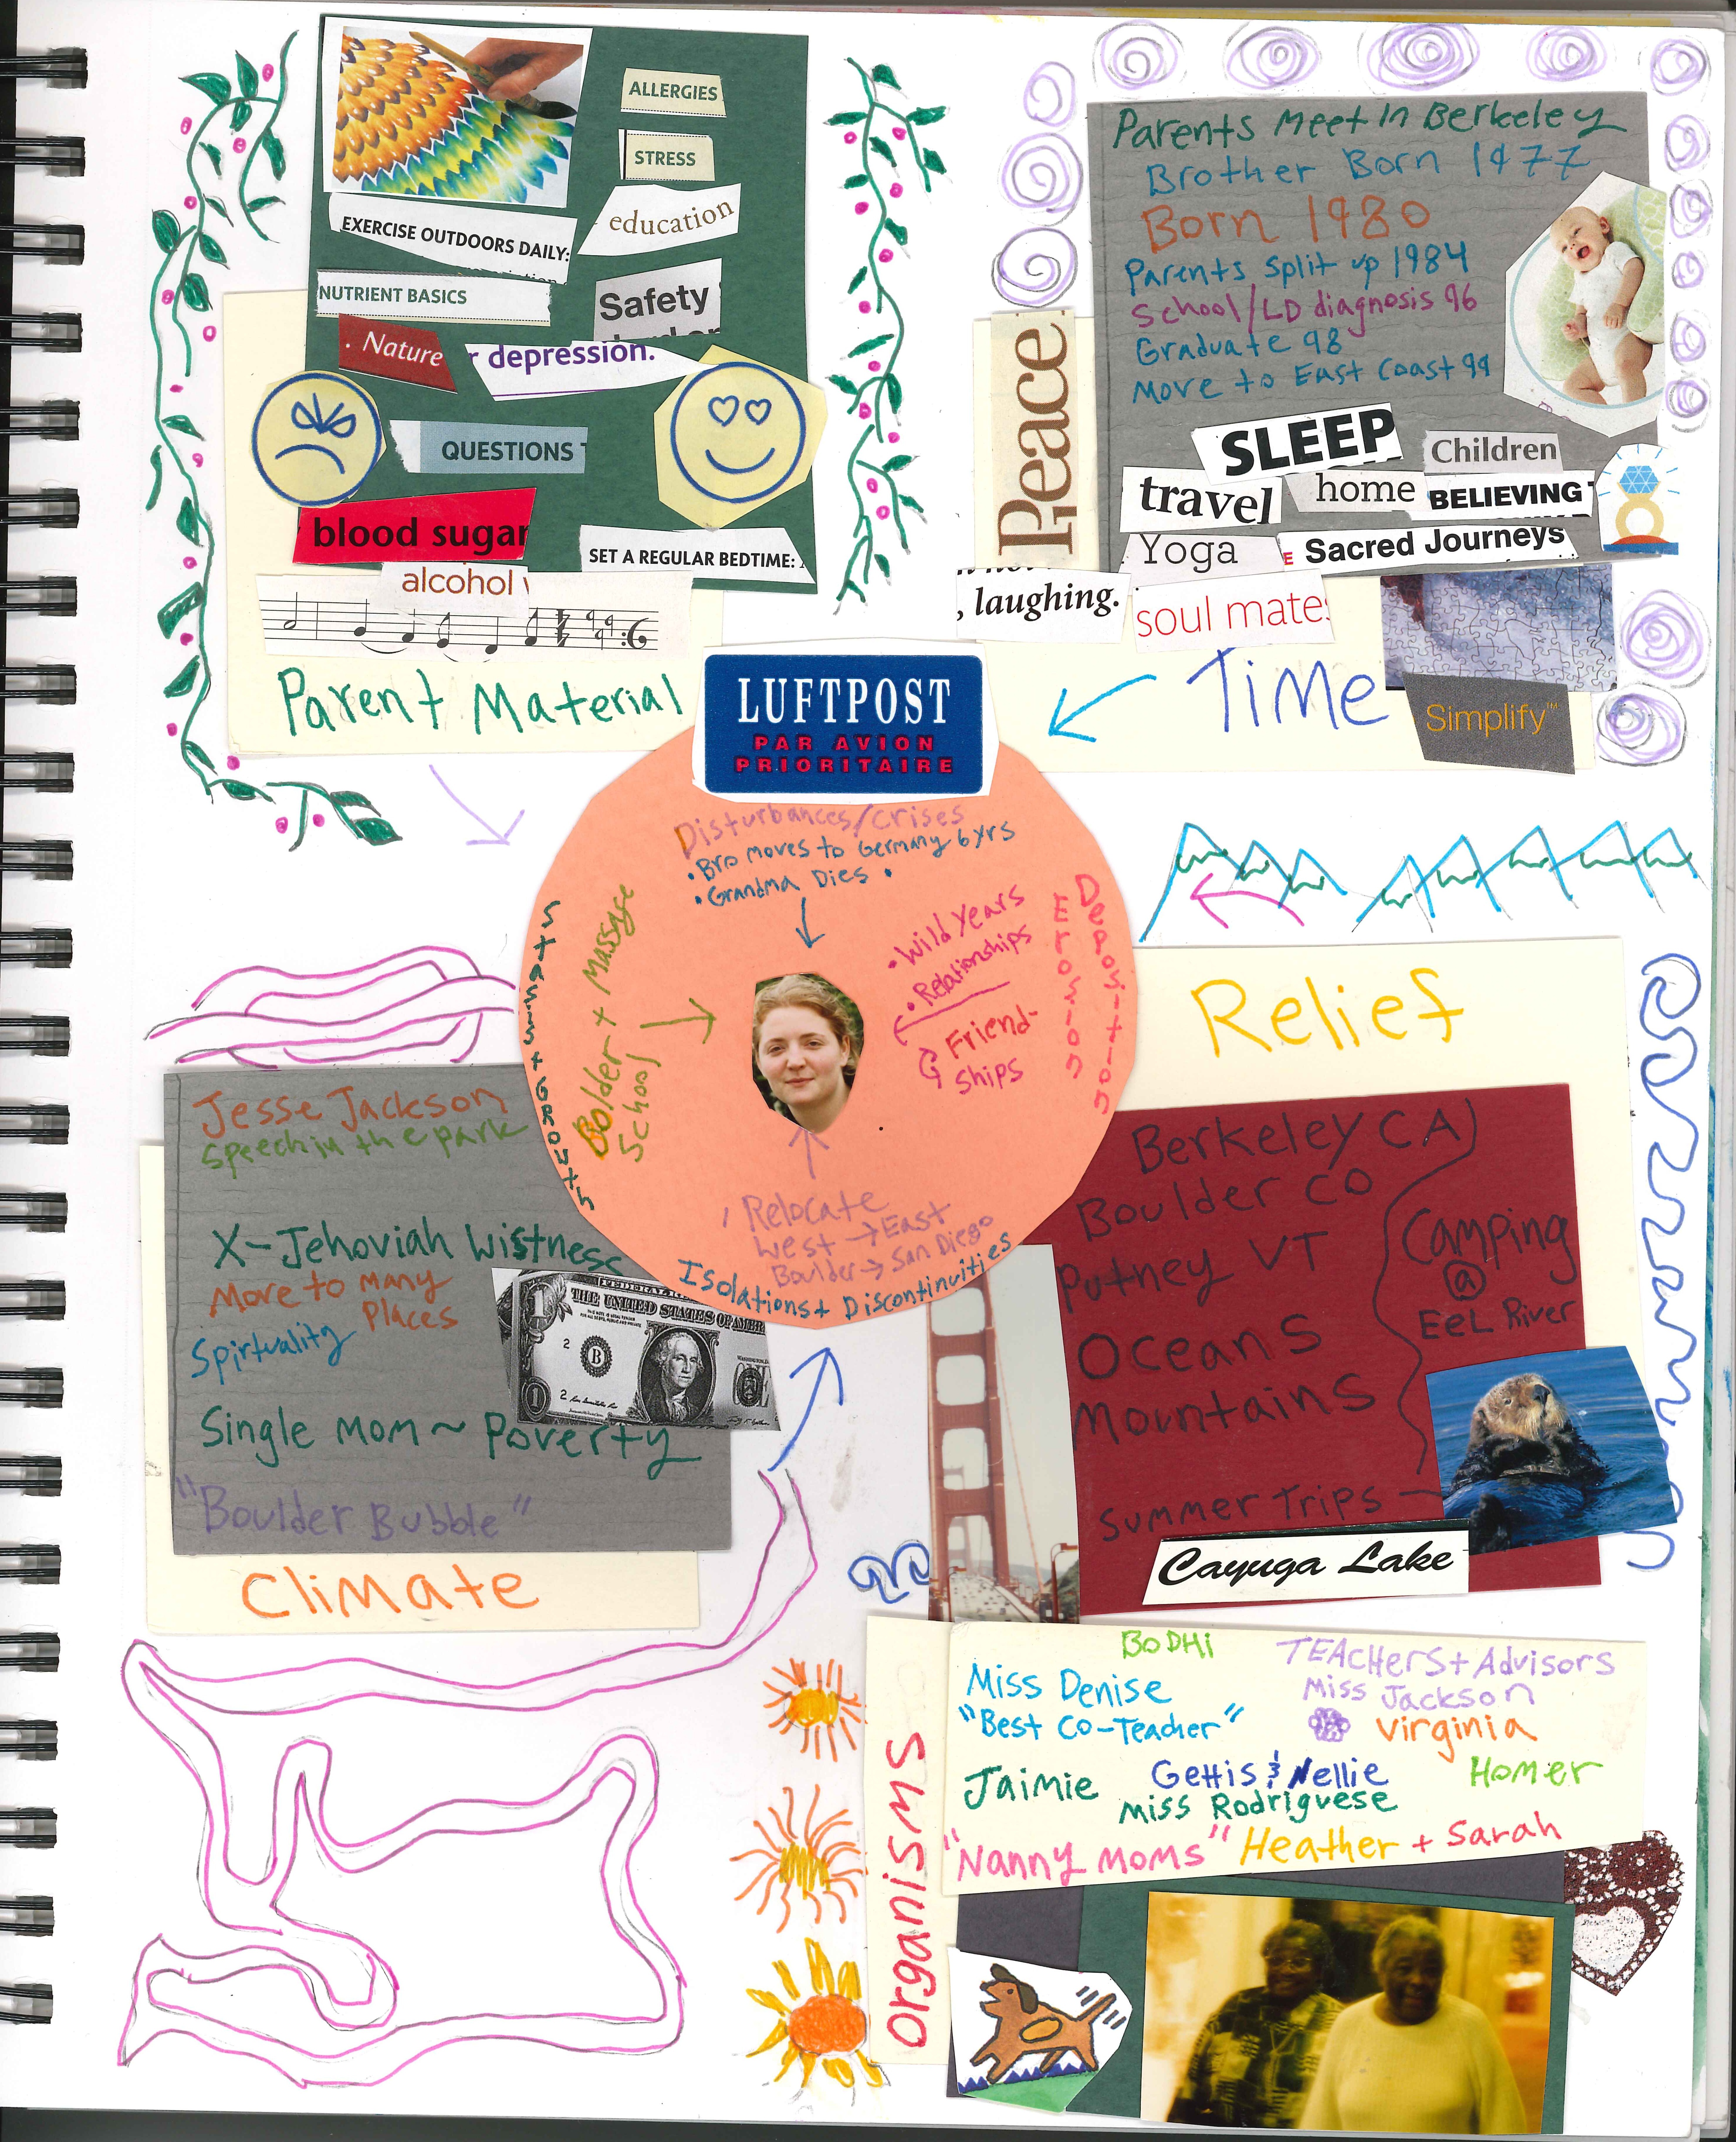 ALLERGIES
STRESS
education
EXERCISE OUTDOORS DAILY:
NUTRIENT BASICS
Safety
. Nature
r depression.
QUESTIONS
blood sugar
SET A REGULAR BEDTIME:
alcohol
Parent Material
Parents Meet In Berkeley
Brother Born 1977
Born 1980
Parents Split up 1984
School/LD diagnosis 96
Graduate 98
Move to East Coast 99
Peace
SLEEP
Children
travel
home
BELIEVING
Yoga
E Sacred Journeys
, laughing.
soul mates
Time
Simplify™
LUFTPOST
PAR AVION
PRIORITAIRE
Disturbances/Crises
• Bro moves to Germany 6yrs
• Grandma Dies •
Stasis + Growth
Bolder + Massage
School
• Wild Years
• Relationships
Friend-
ships
Erosion
Deposition
Relocate
West → East
Boulder → San Diego
Isolations + Discontinuities
Relief
Berkeley CA
Boulder CO
Putney VT
Oceans
Mountains
Camping
@
Eel River
Summer Trips
Cayuga Lake
Jesse Jackson
Speech in the park
X-Jehoviah Wistness
Move to Many
Places
Spirtuality
Single Mom ~ Poverty
"Boulder Bubble"
FEDERAL
THE UNITED STATES OF AMER
1
2
B
1
2
WASHINGTON
Climate
Organisms
BODHi
TEACHERS + Advisors
Miss Denise
Miss Jackson
"Best Co-Teacher"
Virginia
Jaimie
Gettis & Nellie
Homer
Miss Rodriguese
"Nanny Moms" Heather + Sarah